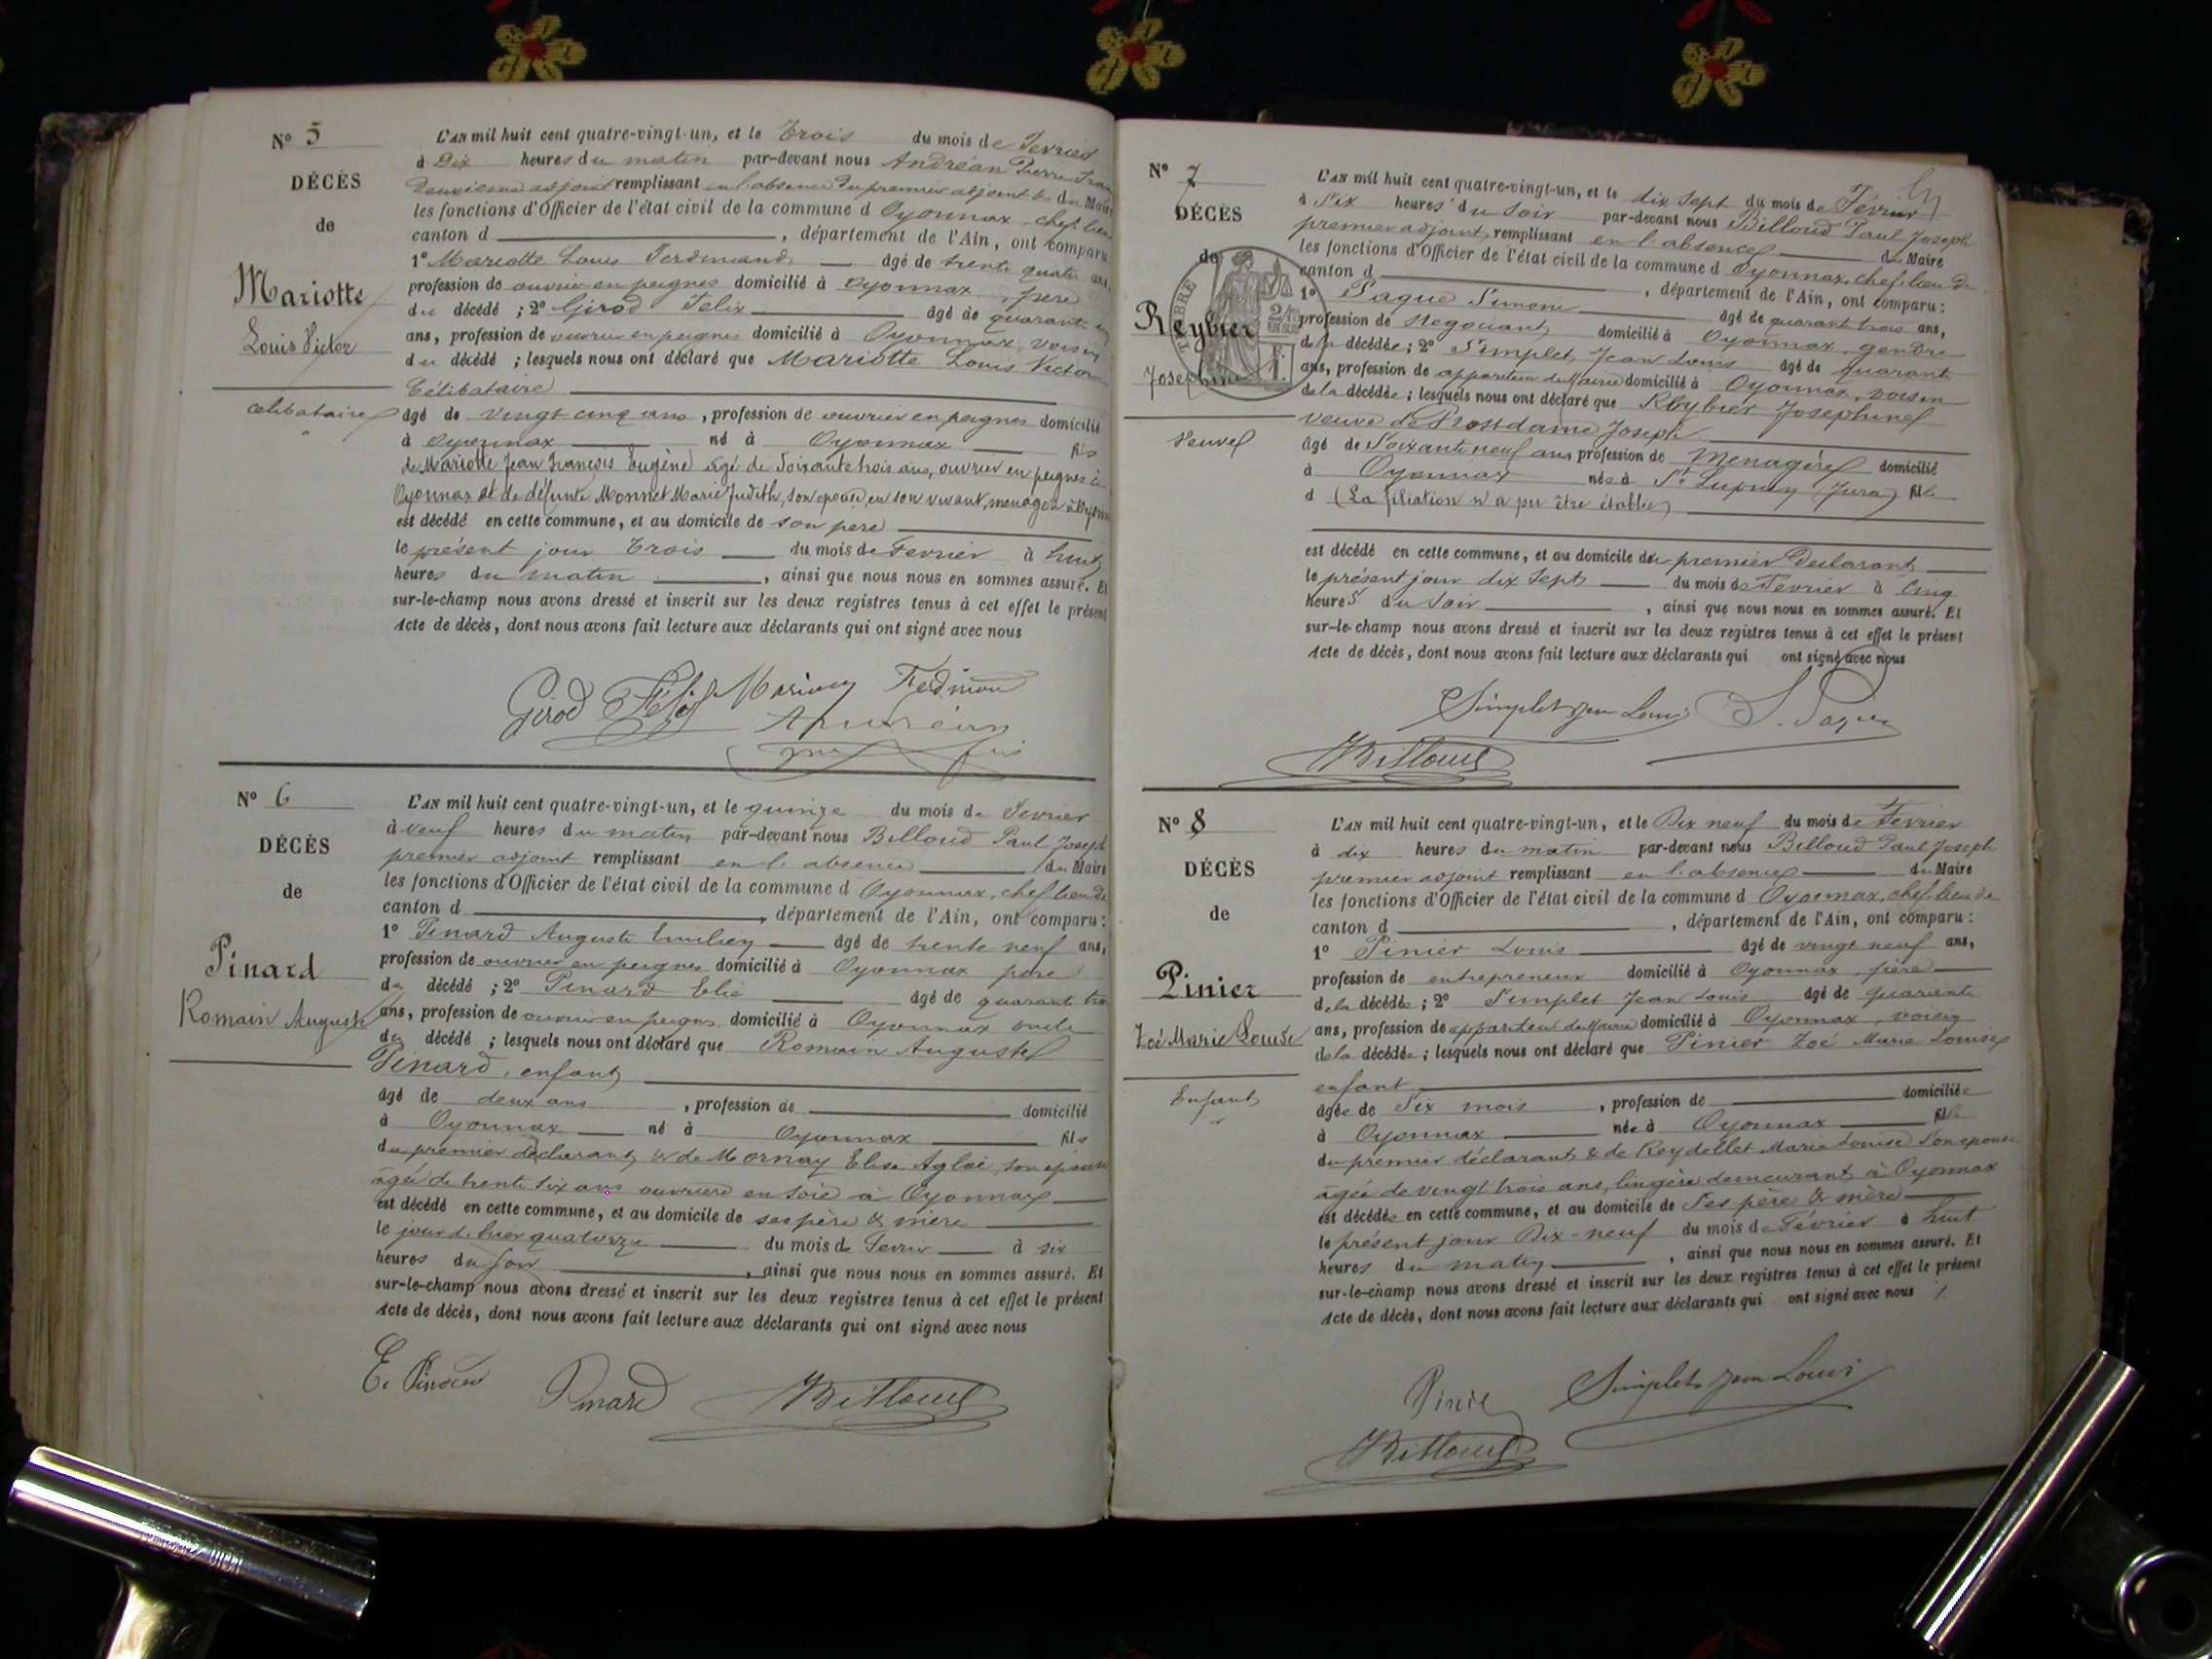 N° 5
DÉCÈS
de
Mariotte
Louis Victor
célibataire
L'AN mil huit cent quatre-vingt-un, et le Trois du mois de Fevrier
à Dix heures du matin par-devant nous Andréan Pierre
deuxieme adjoint remplissant en l'absence du premier adjoint & du Maire
les fonctions d'Officier de l'état civil de la commune d Oyonnax, chef lieu
canton d , département de l'Ain, ont comparu
1° Mariotte Louis Ferdinand âgé de trente quatre ans,
profession de ouvrier en peignes domicilié à Oyonnax, frere
du décédé ; 2° Girod Felix âgé de quarante
ans, profession de ouvrier en peignes domicilié à Oyonnax, voisin
du décédé ; lesquels nous ont déclaré que Mariotte Louis Victor
Célibataire
âgé de vingt cinq ans, profession de ouvrier en peignes domicilié
à Oyonnax né à Oyonnax fils
de Mariotte Jean François Eugène âgé de soixante trois ans, ouvrier en peignes à
Oyonnax et de défunte Monnet Marie Judith, son epouse, en son vivant, menagère à Oyonnax
est décédé en cette commune, et au domicile de son pere
le présent jour Trois du mois de Fevrier à huit
heures du matin , ainsi que nous nous en sommes assuré. Et
sur-le-champ nous avons dressé et inscrit sur les deux registres tenus à cet effet le présent
Acte de décès, dont nous avons fait lecture aux déclarants qui ont signé avec nous
Girod Félix
Andréan
N° 6
DÉCÈS
de
Pinard
Romain Auguste
L'AN mil huit cent quatre-vingt-un, et le quinze du mois de Fevrier
à neuf heures du matin par-devant nous Billoud Paul Joseph
premier adjoint remplissant en l'absence du Maire
les fonctions d'Officier de l'état civil de la commune d Oyonnax, chef lieu de
canton d , département de l'Ain, ont comparu :
1° Pinard Auguste Emilien âgé de trente neuf ans,
profession de ouvrier en peignes domicilié à Oyonnax pere
du décédé ; 2° Pinard Elie âgé de quarante
ans, profession de ouvrier en peignes domicilié à Oyonnax oncle
du décédé ; lesquels nous ont déclaré que Romain Auguste
Pinard, enfant
âgé de deux ans , profession de domicilié
à Oyonnax né à Oyonnax fils
du premier déclarant & de Mornay Elisa Aglaé, son epouse
âgée de trente six ans ouvriere en soie à Oyonnax
est décédé en cette commune, et au domicile de ses père & mère
le jour d'hier quatorze du mois de Fevrier à six
heures du soir , ainsi que nous nous en sommes assuré. Et
sur-le-champ nous avons dressé et inscrit sur les deux registres tenus à cet effet le présent
Acte de décès, dont nous avons fait lecture aux déclarants qui ont signé avec nous
E. Pinard Pinard Billoud
N° 7
DÉCÈS
de
Reybier
Josephine
Veuve
TIMBRE
L'AN mil huit cent quatre-vingt-un, et le dix sept du mois de Février
à Six heures du soir par-devant nous Billoud Paul Joseph
premier adjoint, remplissant en l'absence du Maire
les fonctions d'Officier de l'état civil de la commune d Oyonnax, chef lieu de
canton d , département de l'Ain, ont comparu :
1° Paque Simon âgé de quarante trois ans,
profession de Negociant domicilié à Oyonnax, gendre
de la décédée ; 2° Simplet, Jean Louis âgé de quarante
ans, profession de appariteur de Mairie domicilié à Oyonnax, voisin
de la décédée ; lesquels nous ont déclaré que Reybier Josephine
veuve de Prostdame Joseph
âgé de Soixante neuf ans profession de Menagère domicilié
à Oyonnax née à St Lupicin (Jura) fille
d (La filiation n'a pu être établie)
est décédé en cette commune, et au domicile du premier Declarant
le présent jour dix sept du mois de Fevrier à Cinq
heures du soir , ainsi que nous nous en sommes assuré. Et
sur-le-champ nous avons dressé et inscrit sur les deux registres tenus à cet effet le présent
Acte de décès, dont nous avons fait lecture aux déclarants qui ont signé avec nous
Simplet Jean Louis S. Paque
Billoud
N° 8
DÉCÈS
de
Pinier
Zoé Marie Louise
Enfant
L'AN mil huit cent quatre-vingt-un, et le Dix neuf du mois de Fevrier
à dix heures du matin par-devant nous Billoud Paul Joseph
premier adjoint remplissant en l'absence du Maire
les fonctions d'Officier de l'état civil de la commune d Oyonnax, chef lieu de
canton d , département de l'Ain, ont comparu :
1° Pinier Louis âgé de vingt neuf ans,
profession de entrepreneur domicilié à Oyonnax, père
de la décédée ; 2° Simplet Jean Louis âgé de quarante
ans, profession de appariteur de Mairie domicilié à Oyonnax, voisin
de la décédée ; lesquels nous ont déclaré que Pinier Zoé Marie Louise
enfant
âgée de Six mois , profession de domiciliée
à Oyonnax née à Oyonnax fille
du premier déclarant & de Reydellet Marie Louise Son epouse
âgée de vingt trois ans, lingère demeurant à Oyonnax
est décédée en cette commune, et au domicile de Ses père & mère
le présent jour Dix-neuf du mois de Février à huit
heures du matin , ainsi que nous nous en sommes assuré. Et
sur-le-champ nous avons dressé et inscrit sur les deux registres tenus à cet effet le présent
Acte de décès, dont nous avons fait lecture aux déclarants qui ont signé avec nous
Simplet Jean Louis
Billoud